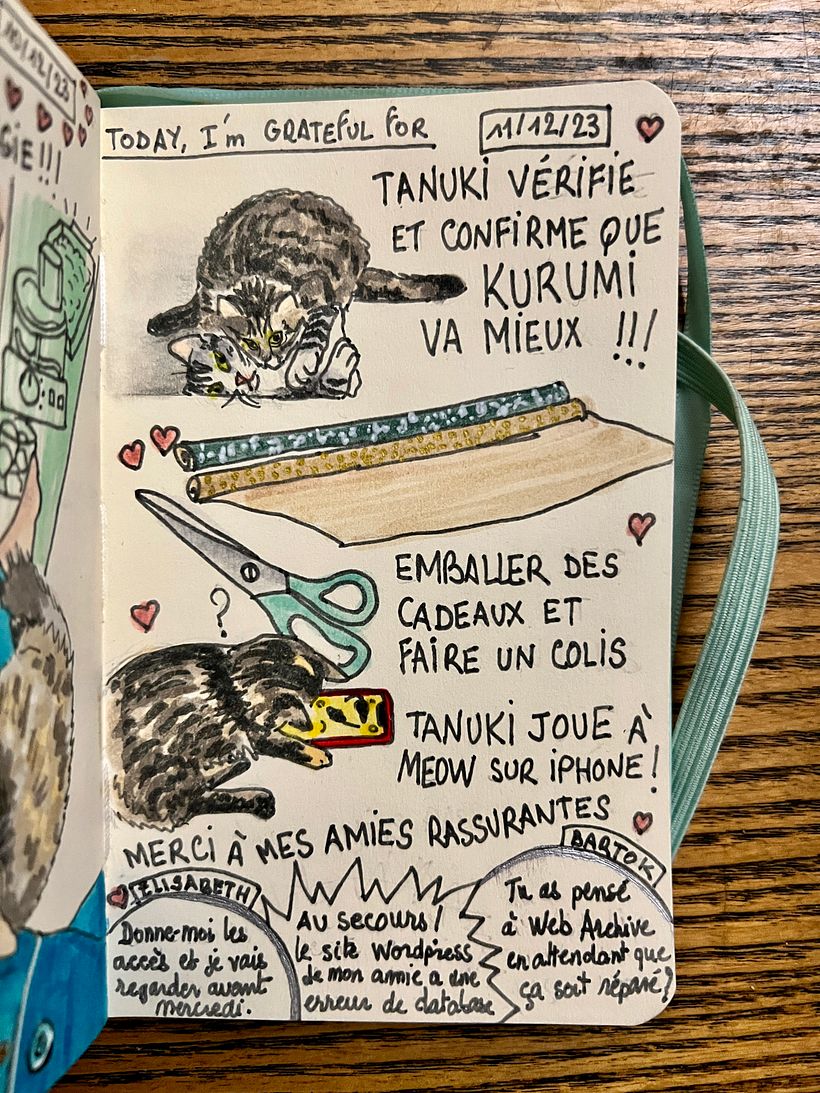 10/12/23
GIE!!!
TODAY, I'm GRATEFUL FOR
11/12/23
TANUKI VÉRIFIE
ET CONFIRME QUE
KURUMI
VA MIEUX !!!
EMBALLER DES
CADEAUX ET
FAIRE UN COLIS
?
TANUKI JOUE À
MEOW SUR IPHONE!
MERCI À MES AMIES RASSURANTES
ELISABETH
Donne-moi les
accès et je vais
regarder avant
mercredi.
AU SECOURS!
le site Wordpress
de mon amie a une
erreur de database
BARTOK
Tu as pensé
à Web Archive
en attendant que
ça soit réparé?